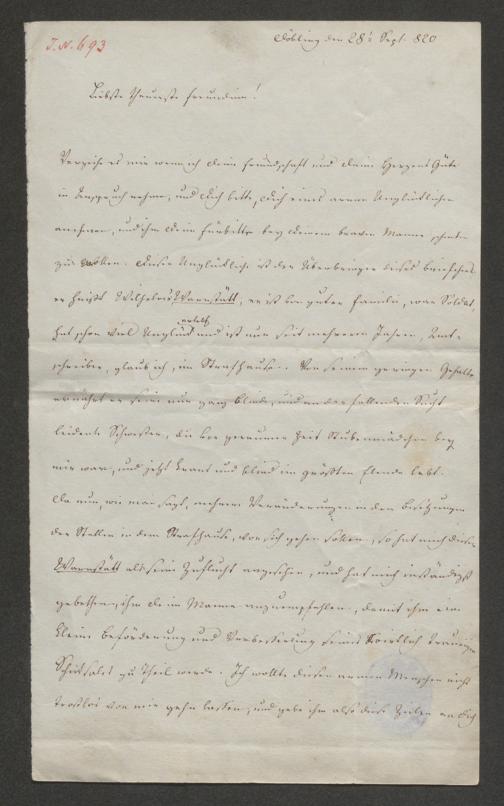 I.N. 693
Döbling den 28t Sept. 820
Liebste theuerste Freundinn!
Verzeihe es mir wenn ich deine Freundschaft und deine Herzens Güte
in Anspruch nehme, und dich bitte, dich eines armen Unglücklichen
annehmen, und ihm deine Fürbitte bey deinem braven Manne schenken
zu wollen. Dieser Unglückliche ist der Überbringer dieses Briefchens
er heißt Wilhelm Warnstätt, er ist von guter Familie, war Soldat,
hat schon viel Unglück erlebt und ist nun seit mehreren Jahren, Amts-
schreiber, glaub ich, im Strafhause. Von seinem geringen Gehalte
ernährt er seine nun ganz blinde, und an der fallenden Sucht
leidende Schwester, die vor geraumer Zeit Stubenmädchen bey
mir war, und jetzt krank und blind im größten Elende lebt.
Da nun, wie man sagt, mehrere Veränderungen in den Besetzungen
der Stellen in dem Strafhause, vor sich gehen sollen, so hat mich dieser
Warnstätt als seine Zuflucht angesehen, und hat mich inständigst
gebethen, ihn deinem Manne anzuempfehlen, damit ihm eine
kleine Beförderung und Verbesserung seines wirklich traurigen
Schicksales zu Theil werde. Ich wollte diesen armen Menschen nicht
trostlos von mir gehn lassen, und gebe ihm also diese Zeilen an dich